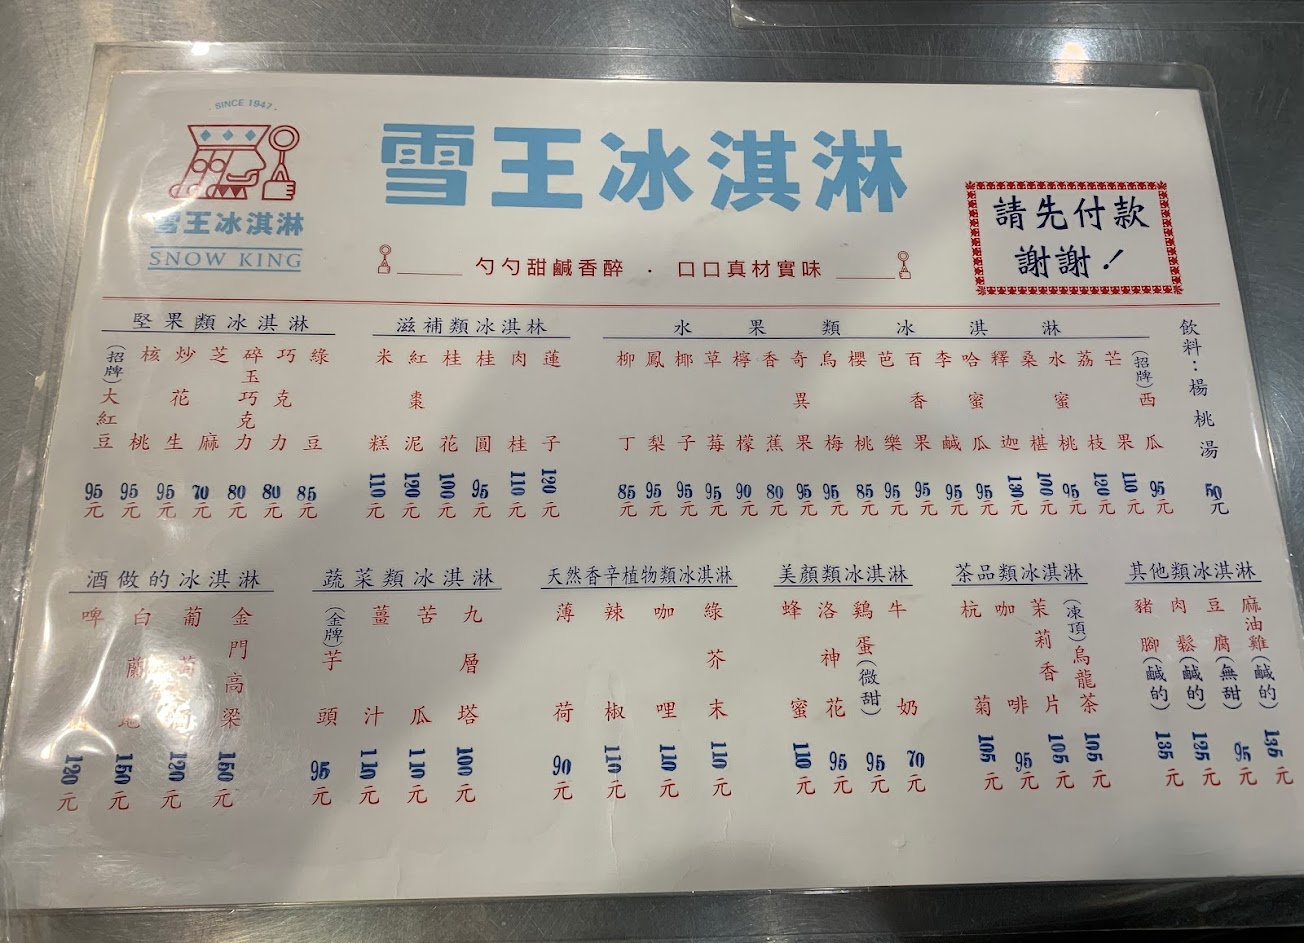 SINCE 1947
雪王冰淇淋
SNOW KING
雪王冰淇淋
勺勺甜鹹香醉 · 口口真材實味
請先付款
謝謝！
堅果類冰淇淋
(招牌)大紅豆 95元
核桃 95元
炒花生 95元
芝麻 70元
碎玉巧克力 80元
巧克力 80元
綠豆 85元
滋補類冰淇淋
米糕 110元
紅棗泥 120元
桂花 100元
桂圓 95元
肉桂 110元
蓮子 120元
水果類冰淇淋
柳丁 85元
鳳梨 95元
椰子 95元
草莓 95元
檸檬 90元
香蕉 80元
奇異果 95元
烏梅 95元
櫻桃 85元
芭樂 95元
百香果 95元
李鹹 95元
哈蜜瓜 95元
釋迦 130元
桑椹 100元
水蜜桃 95元
荔枝 120元
芒果 110元
(招牌)西瓜 95元
飲料：楊桃湯 50元
酒做的冰淇淋
啤 120元
白蘭地 150元
葡萄酒 120元
金門高粱 150元
蔬菜類冰淇淋
(金牌)芋頭 95元
薑汁 110元
苦瓜 110元
九層塔 100元
天然香辛植物類冰淇淋
薄荷 90元
辣椒 110元
咖哩 110元
綠芥末 110元
美顏類冰淇淋
蜂蜜 110元
洛神花 95元
鷄蛋(微甜) 95元
牛奶 70元
茶品類冰淇淋
杭菊 105元
咖啡 95元
茉莉香片 105元
(凍頂)烏龍茶 105元
其他類冰淇淋
豬腳(鹹的) 135元
肉鬆(鹹的) 125元
豆腐(無甜) 95元
麻油雞(鹹的) 135元